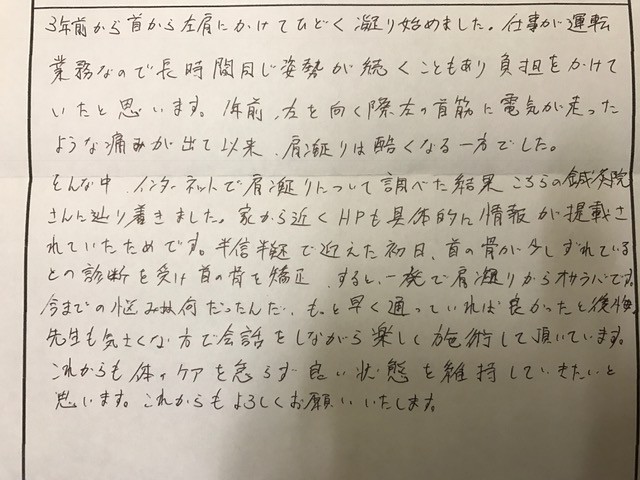 3年前から首から左肩にかけてひどく凝り始めました。仕事が運転
業務なので長時間同じ姿勢が続くこともあり負担をかけて
いたと思います。1年前、左を向く際左の首筋に電気が走った
ような痛みが出て以来、肩凝りは酷くなる一方でした。
そんな中、インターネットで肩凝りについて調べた結果こちらの鍼灸院
さんに辿り着きました。家から近くHPも具体的に情報が掲載さ
れていたためです。半信半疑で迎えた初日、首の骨が少しずれている
との診断を受け首の骨を矯正、すると、一発で肩凝りからオサラバです。
今までの悩みは何だったんだ、もっと早く通っていれば良かったと後悔。
先生も気さくな方で会話をしながら楽しく施術して頂いています。
これからも体のケアを怠らず良い状態を維持していきたいと
思います。これからもよろしくお願いいたします。